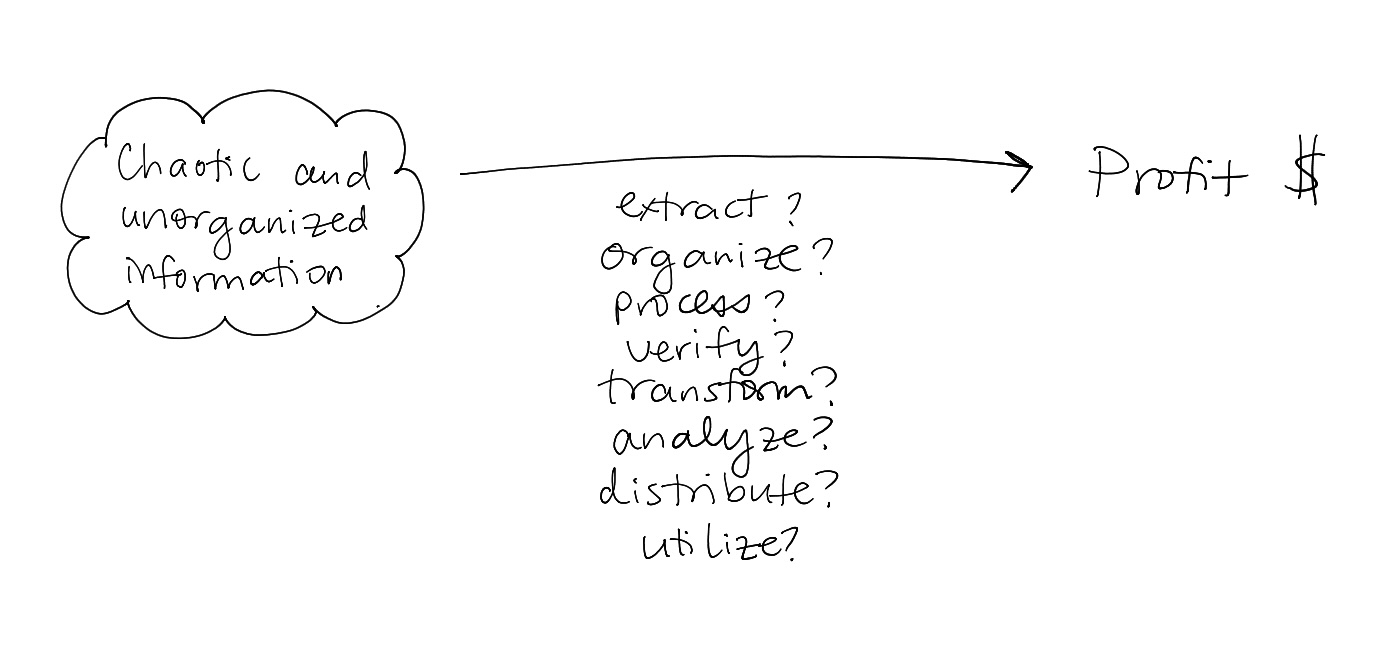 Chaotic and
unorganized
information
extract?
organize?
process?
verify?
transform?
analyze?
distribute?
utilize?
Profit $